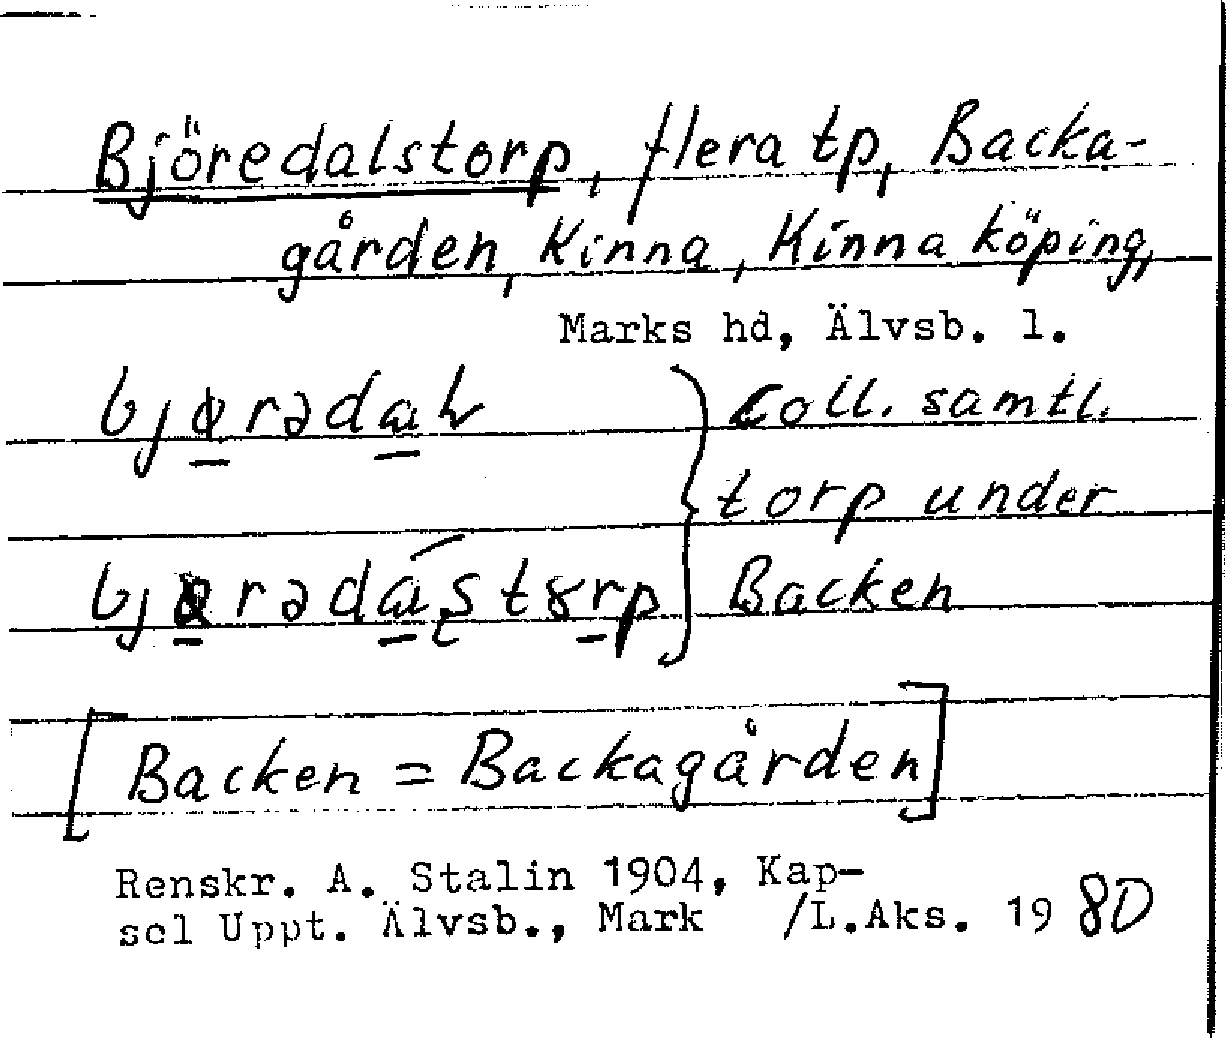 Björedalstorp, flera tp, Backa-
gården, Kinna, Kinna köping,
Marks hd, Älvsb. l.
coll. samtl.
torp under
Backen
[Backen = Backagården]
Renskr. A. Stalin 1904, Kap-
sel Uppt. Älvsb., Mark /L.Aks. 1980